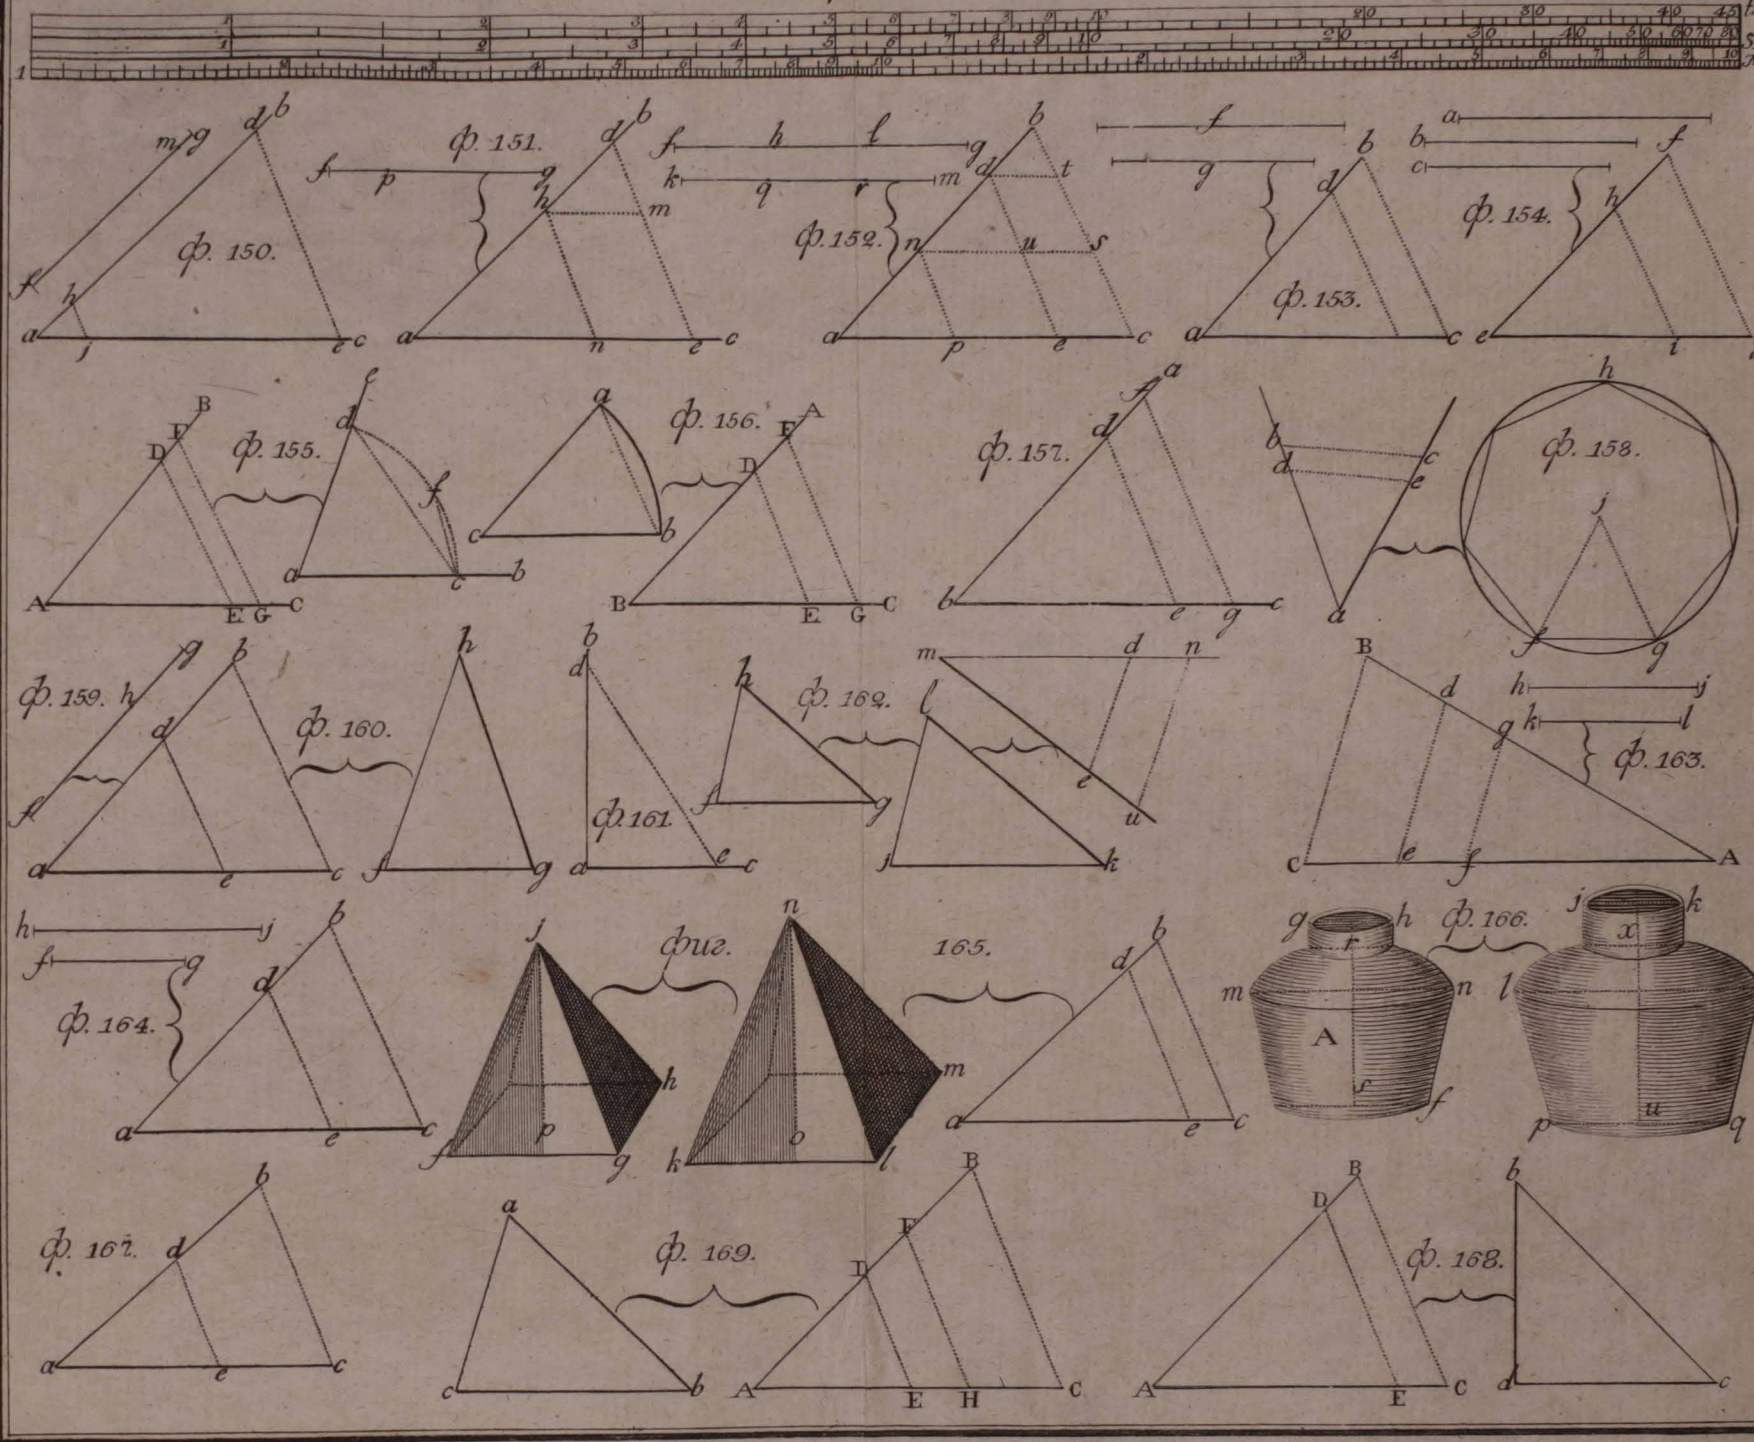 1 2 3 4 5 6 7 8 9 10 20 30 40 45
1 2 3 4 5 6 7 8 9 10 20 30 40 50 60 70 80
1 2 3 4 5 6 7 8 9 10 2 3 4 5 6 7 8 9 10
m g d b f h a j e c ф. 150.
ф. 151. f p g d b h m a n e c
f h l g k q r m b d t n u s a p e c ф. 152.
f g b d a c ф. 153.
a b c f h e i ф. 154.
B F D A E G C ф. 155. e d f a c b
a c b ф. 156. A F D B E G C
ф. 157. a f d b e g c
b d c e a h ф. 158. j f g
ф. 159. g h f b d a e c
ф. 160. h f g
b d a e c ф. 161.
h f g ф. 162. l j k m d n e u
B d g C e f A h j k l ф. 163.
h j f g b d a e c ф. 164.
j h f p g фиг. n m k o l 165. b d a e c
g h r m n A s f ф. 166. j k x l u p q
ф. 167. b d a e c
a c b ф. 169. B F D A E H C
B D A E C ф. 168. b d c